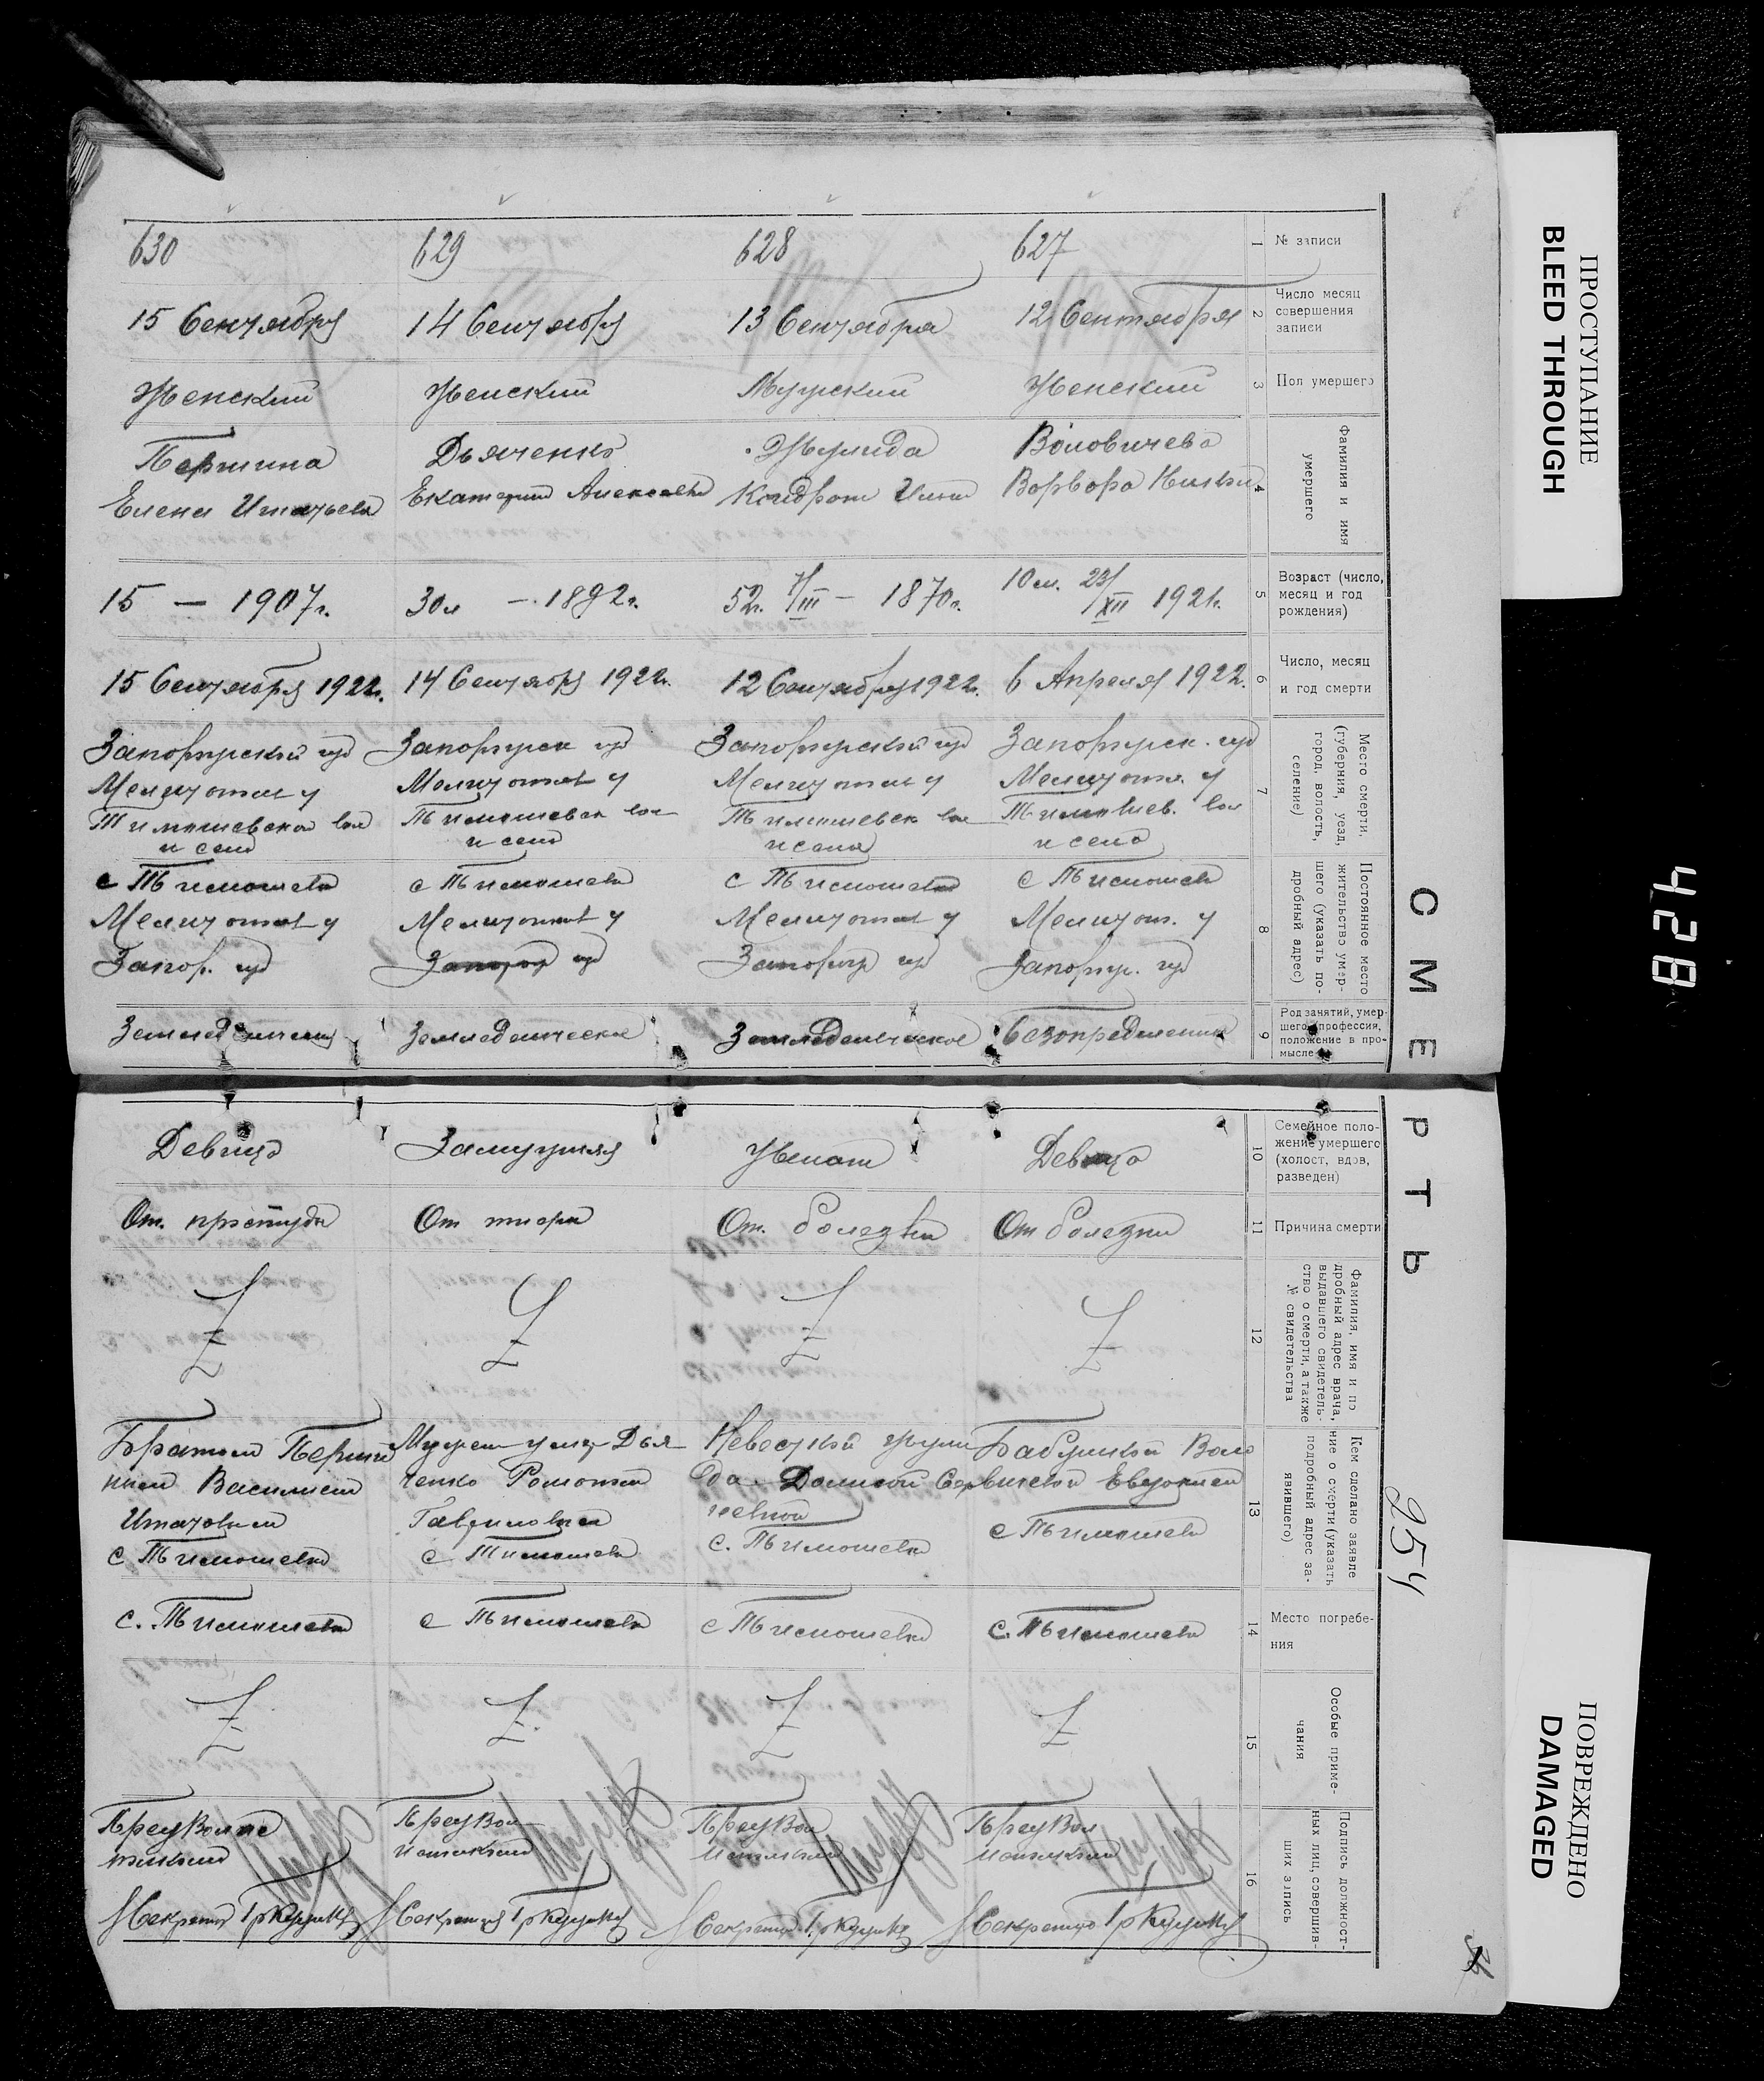 ПРОСТУПАНИЕ
BLEED THROUGH
ПОВРЕЖДЕНО
DAMAGED
428
254
СМЕРТЬ
1 № записи
627
628
629
630
2 Число месяц
совершения
записи
12 Сентября
13 Сентября
14 Сентября
15 Сентября
3 Пол умершего
Женский
Мужский
Женский
Женский
4 Фамилия и имя
умершего
Воловичева
Ворвора
Жулида
Кондрат
Дьяченко
Екатерина Алексеевна
Першина
Елена Игнатьевна
5 Возраст (число,
месяц и год
рождения)
10 м. 23/XII 1921г.
52г. 7/III — 1870г.
30л — 1892г.
15 — 1907г.
6 Число, месяц
и год смерти
6 Апреля 1922.
12 Сентября 1922г.
14 Сентября 1922г.
15 Сентября 1922г.
7 Место смерти,
(губерния, уезд,
город, волость,
селение)
Запорожск. губ
Мелитоп. у
Тимошев. вол
и село
Запорожской губ
Мелитопол у
Тимошевск вол
и села
Запорожск губ
Мелитопол у
Тимошевск вол
и село
Запорожской губ
Мелитопол у
Тимошевской вол
и село
8 Постоянное место
жительство умер-
шего (указать по-
дробный адрес)
с Тимошевк
Мелитоп. у
Запорож. губ
с Тимошевка
Мелитопол у
Запорож губ
с Тимошевка
Мелитопол у
Запорож губ
с Тимошевка
Мелитопол у
Запор. губ
9 Род занятий, умер-
шего (профессия,
положение в про-
мысле
безопределения
Земледельческое
Земледельческое
Земледельческия
10 Семейное поло-
жение умершего
(холост, вдов,
разведен)
Девица
Женат
Замужняя
Девица
11 Причина смерти
От болезни
От. болезни
От тифа
От. простуды
12 Фамилия, имя и по
дробный адрес врача,
выдавшего свидетель-
ство о смерти, а также
№ свидетельства
Z
Z
Z
Z
13 Кем сделано заявле
ние о смерти (указать
подробный адрес за-
явившего)
Бабушкой Воло
Евдокией
с Тимошевка
Невесткой Жули
да Домной Сер
геевной
с. Тимошевка
Мужем умер Дья
ченко Романом
Гавриловым
с Тимошевка
Братом Перши
ным Василием
Игнатовым
с Тимошевка
14 Место погребе-
ния
с. Тимошевка
с Тимошевка
с Тимошевка
с. Тимошевка
15 Особые приме-
чания
Z
Z
Z
Z
16 Подпись должност-
ных лиц, совершив-
ших запись
ПредВол
исполкома
Секретарь
ПредВол
исполкома
Секретарь
ПредВол
исполкома
Секретарь
ПредВол
Секретарь